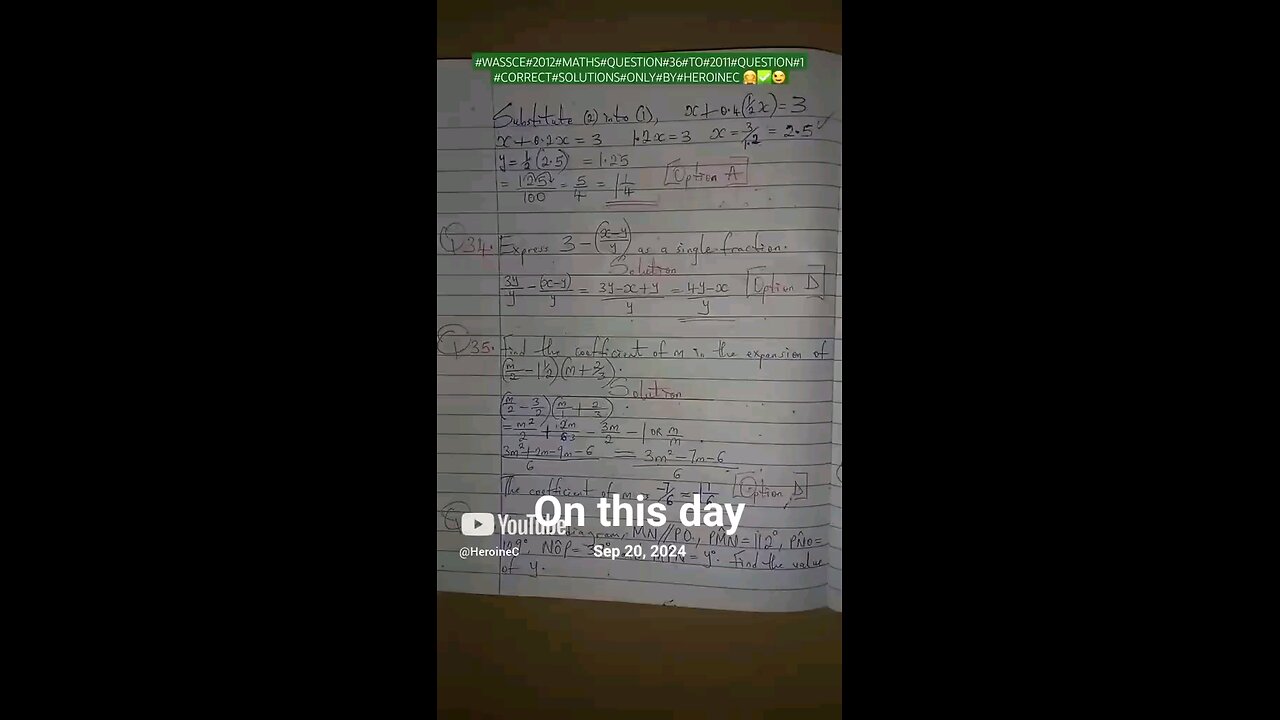 #WASSCE#2012#MATHS#QUESTION#36#TO#2011#QUESTION#1
#CORRECT#SOLUTIONS#ONLY#BY#HEROINEC 🤗✅😉
Substitute (2) into (1), x+0.4(½x)=3
x+0.2x=3 1.2x=3 x=3/1.2=2.5✓
y=½(2.5) =1.25
=125/100=5/4=1¼ [Option A]
34. Express 3-(x-y/y) as a single fraction.
Solution
3y/y-(x-y)/y=3y-x+y/y=4y-x/y [Option D]
35. Find the coefficient of m in the expansion of
(m/2-1½)(m+2/3).
Solution
(m/2-3/2)(m/1+2/3).
=m²/2+2m/6-3m/2-1 OR m/m
3m²+2m-9m-6/6 = 3m²-7m-6/6
The coefficient of m [Option D]
On this day
YouTube diagram, MN//PO, PM̂N=112°, PN̂O=
@HeroineC NÔP= Sep 20, 2024 =y°. Find the value
of y.